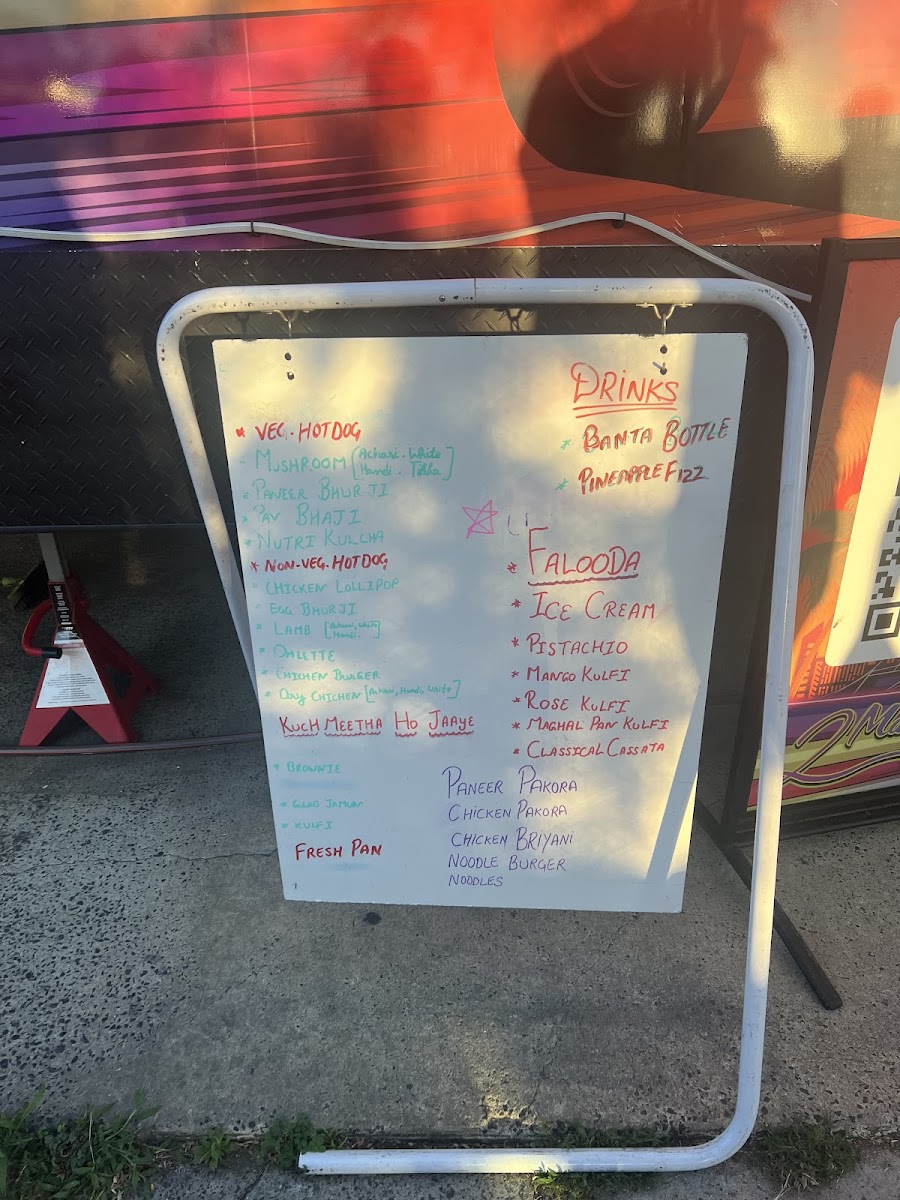 * VEG. HOTDOG
MUSHROOM [Achari. White
Handi. Tikka]
* PANEER BHURJI
* PAV BHAJI
* NUTRI KULCHA
* NON-VEG. HOTDOG
* CHICKEN LOLLIPOP
* EGG BHURJI
* LAMB [Achari, White
Handi.]
* OMLETTE
* CHICKEN BURGER
* CHICKEN [Achari, Handi, White]
KUCH MEETHA HO JAAYE
* BROWNIE
* GULAB JAMUN
* KULFI
FRESH PAN
DRINKS
* BANTA BOTTLE
* PINEAPPLE FIZZ
* FALOODA
* ICE CREAM
* PISTACHIO
* MANGO KULFI
* ROSE KULFI
* MAGHAI PAN KULFI
* CLASSICAL CASSATA
PANEER PAKORA
CHICKEN PAKORA
CHICKEN BRIYANI
NOODLE BURGER
NOODLES